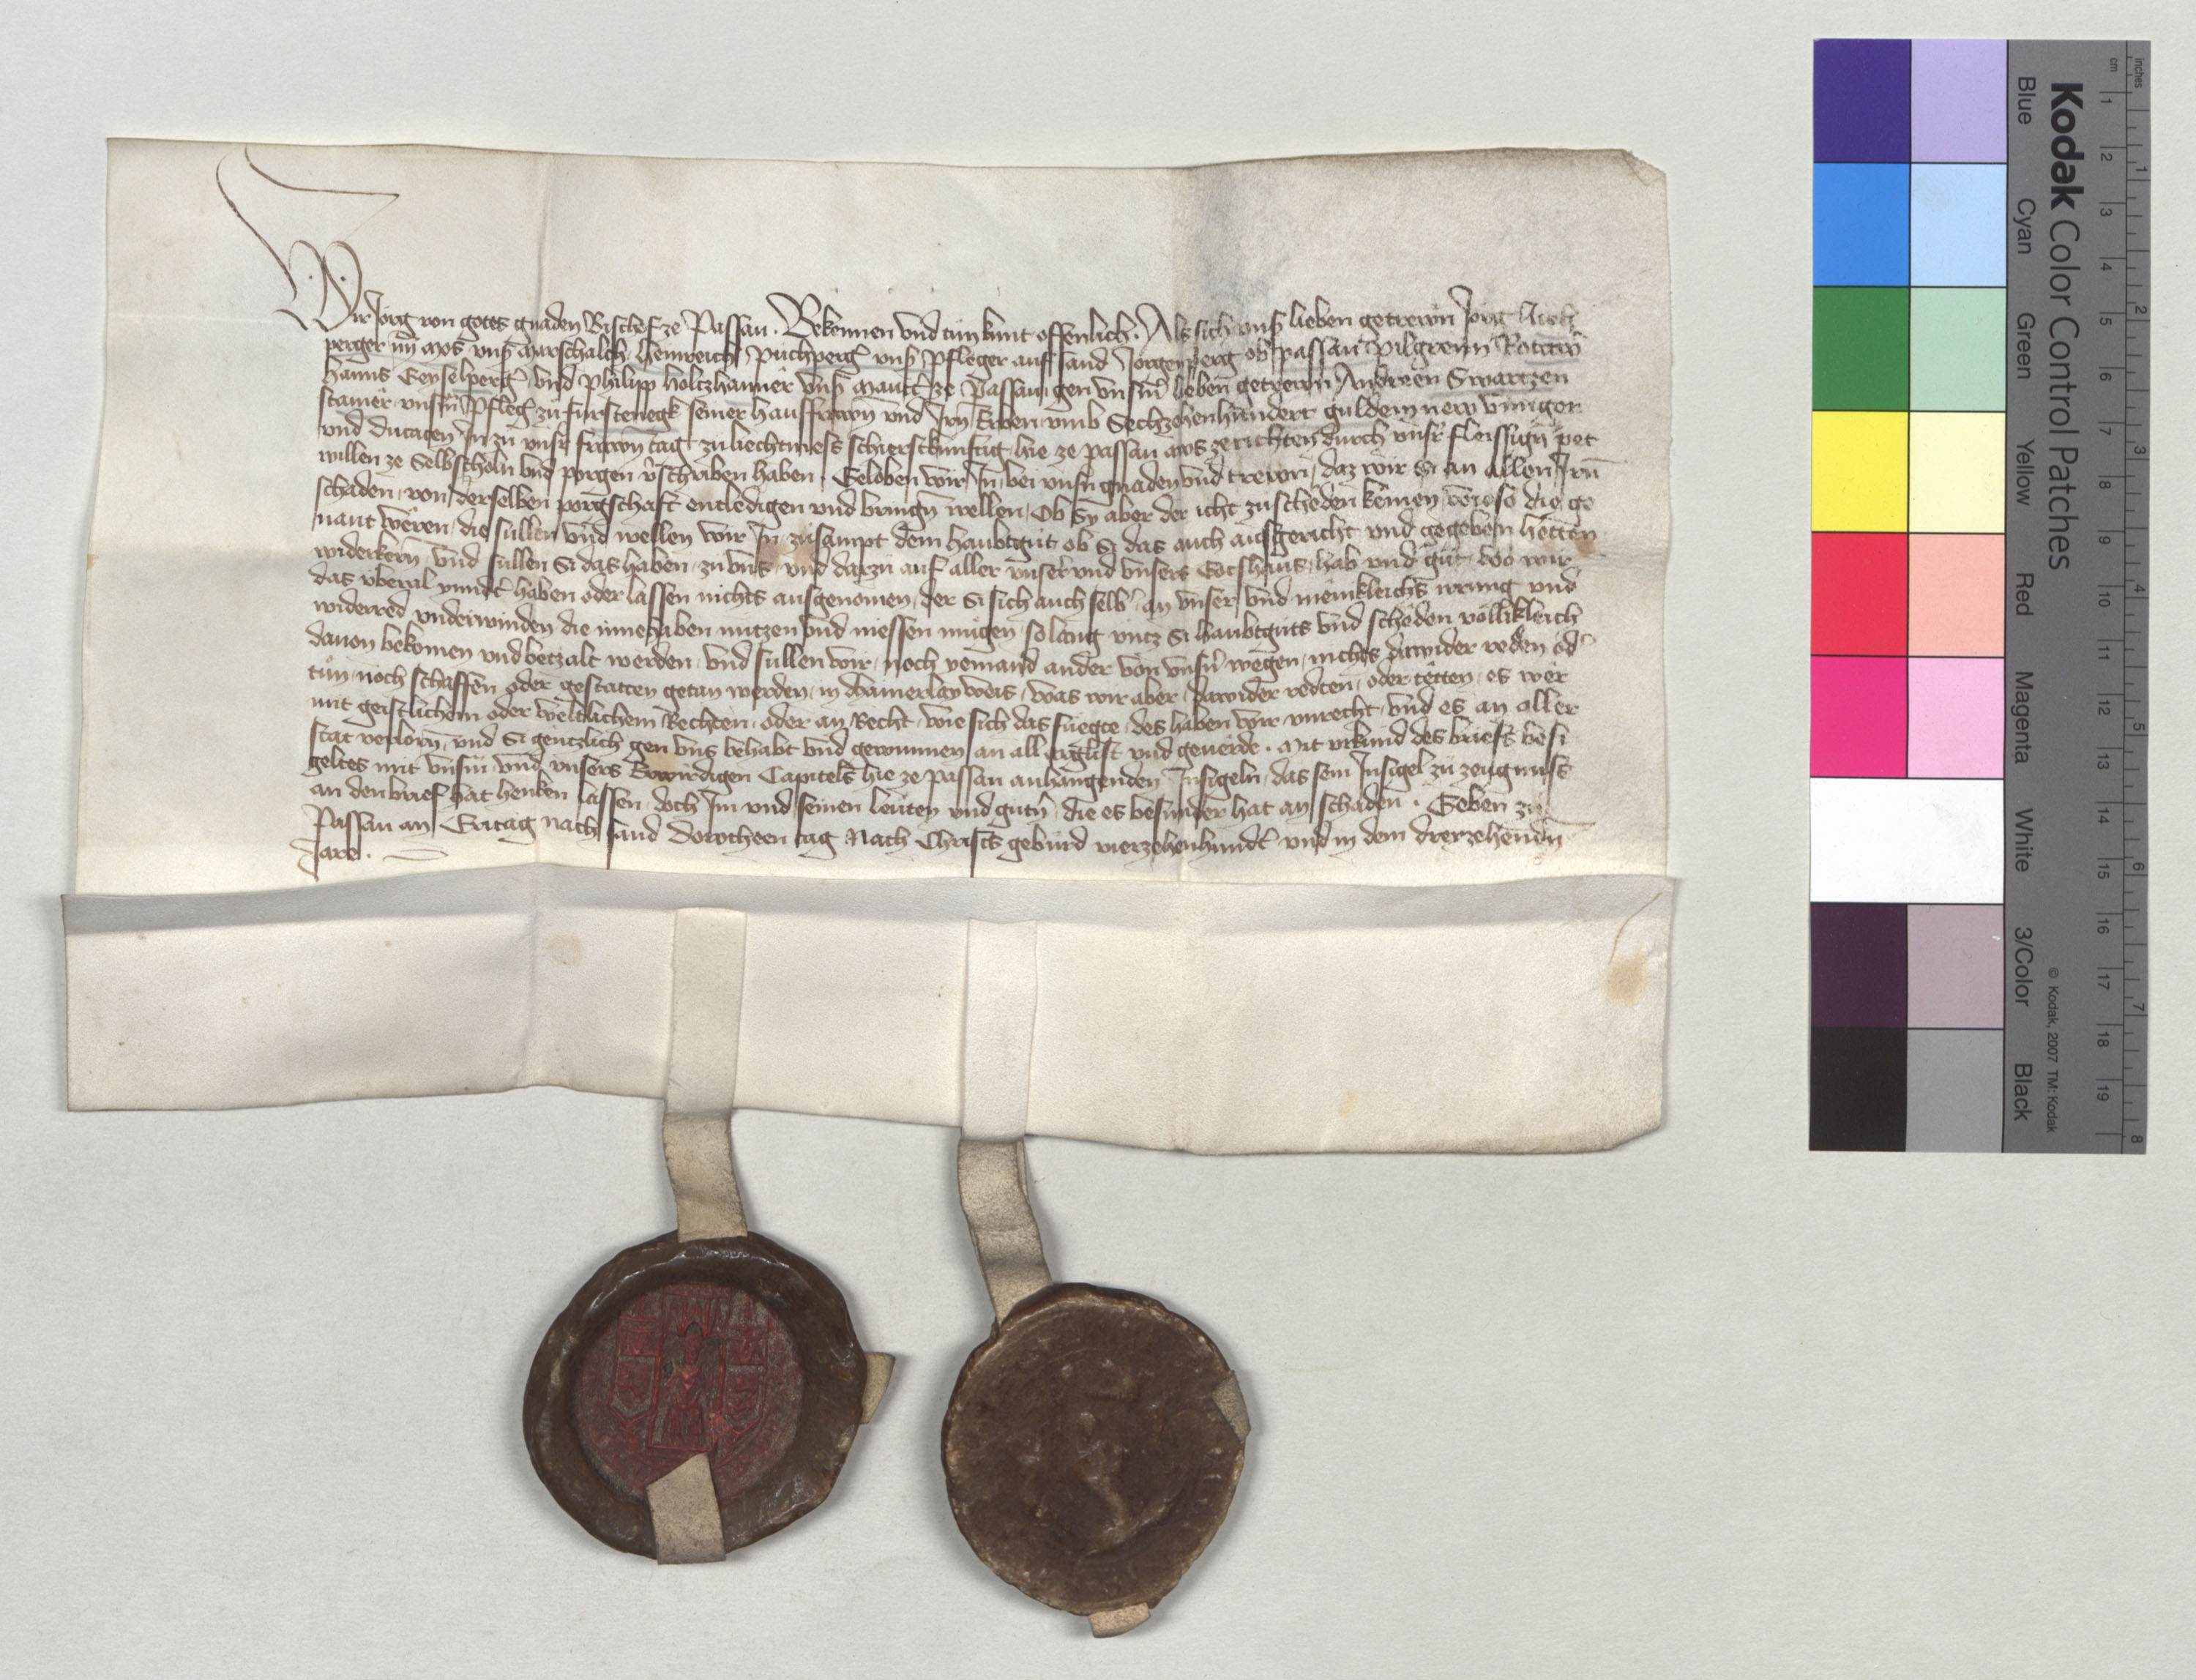 Wir Jörg von gotes gnaden Bischof ze Passau. Bekennen vnd tün kunt offenlich. Als sich vnsͬ lieben getrewn Jörg Aich
perger im Mos vnsͬ Marschalch, Heinreich Püchpergͬ vnsͬ Pfleger auf sand Jörgenperg ob Passau Pilgreim
Hanns Geyselpergͬ vnd Philipp Holtzhaimer vnsͬ Mautͭ ze Passau, gen vnsͬm lieben getrewn Andreen Swartzen
stainer vnsͬm Pflegͬ zu Furstenegk seiner hausfrawn vnd Irn Erben vmb Sechzehenhundert guldein new vnnger
vnd ducaten In zu vnsͬ frawn tag zu liechtmess schieristkunftig, hie ze Passau aws ze richten durch vnsͬ fleissign pet
willen ze Selbscholn vnd porgen vͬschriben haben. Geloben wir In bei vnsͬn gnaden vnd trewn, daz wir Si an allen Irn
schaden, von derselben porgschaft entledigen vnd bringn wellen, Ob Sy aber der icht zu scheden kemen wie so die ge
nant weren, die sullen vnd wellen wir In zusampt dem haubtgut ob Si das auch ausgericht vnd gegeben hetten
widerkern vnd sullen Si das haben, zu vns, vnd darzu auf aller vnserͬ vnd vnsers Gotshaus, hab vnd gut, wo wir
das vberal yndertͭ haben oder lassen nichts ausgenomen, der Si sich auch selb an vnser vnd meinkleichs irrung vnd
widerred vnderwinden die innehaben nutzen vnd niessen mugen solang vntz Si haubtguts vnd scheden vollikleich
dauon bekomen vnd betzalt werden, vnd sullen wir, noch yemand ander von vnsͬn wegen, nichts dawider reden odͬ
tün, noch schaffen oder gestatten getan werden, in dhainerlay weis, was wir aber dawider redten, oder tetten, es wer
mit geistlichem oder weltlichem Rechten, oder an Recht, wie sich das fuegte, des haben wir vnrecht, vnd es an aller
stat verlorn, vnd Si gentzlich gen vns behabt vnd gewunnen an all arglist vnd geuerde. Mit vrkund des briefs besi
geltes mit vnsͬm vnd vnsers Erwirdigen Capitels hie ze Passau anhangenden Insigeln, das sein Insigel zu zeugnuss
an den brief hat henken lassen, doch Im vnd seinen leuten vnd gutͬn, die es besunder hat an schaden. Geben zu
Passau an Eritag nach sand Dorotheen tag Nach Christs gebürd vierzehenhundͭ vnd in dem dreyzehenden
Jare.
Kodak Color Control Patches
Blue Cyan Green Yellow Red Magenta White 3/Color Black
© Kodak, 2007 TM: Kodak
cm 1 2 3 4 5 6 7 8 9 10 11 12 13 14 15 16 17 18 19
inches 1 2 3 4 5 6 7 8